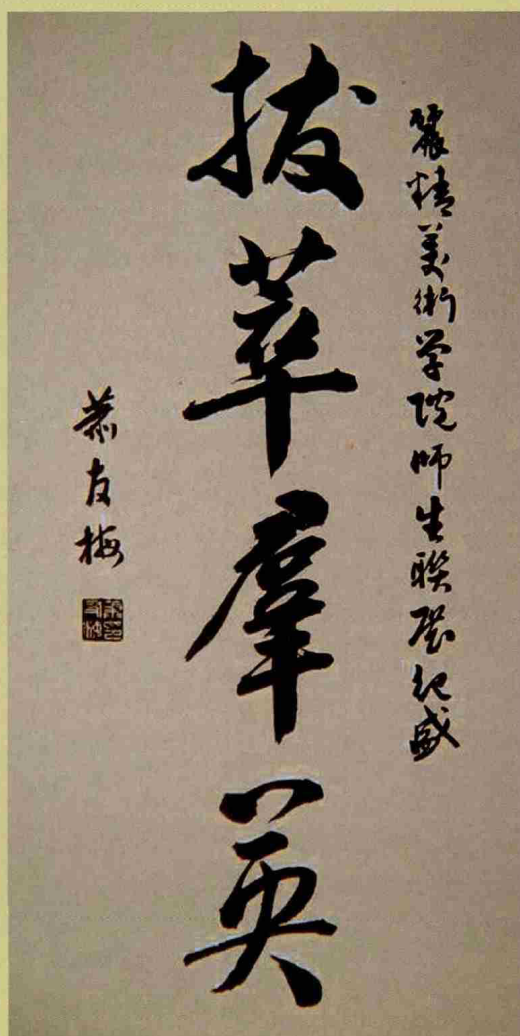 麗精美術学院师生联展纪盛
拔萃群英
萧友梅